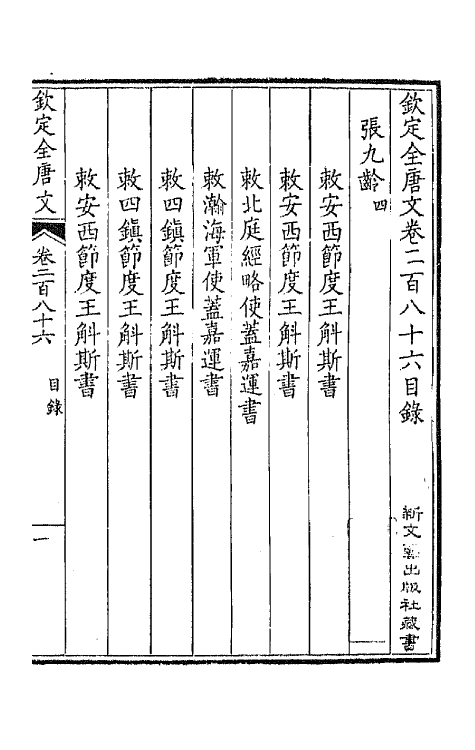 欽定全唐文卷二百八十六目錄
新文豐出版社藏書
張九齡四
敕安西節度王斛斯書
敕安西節度王斛斯書
敕北庭經略使蓋嘉運書
敕瀚海軍使蓋嘉運書
敕四鎮節度王斛斯書
敕四鎮節度王斛斯書
敕安西節度王斛斯書
欽定全唐文 卷二百八十六 目錄 一